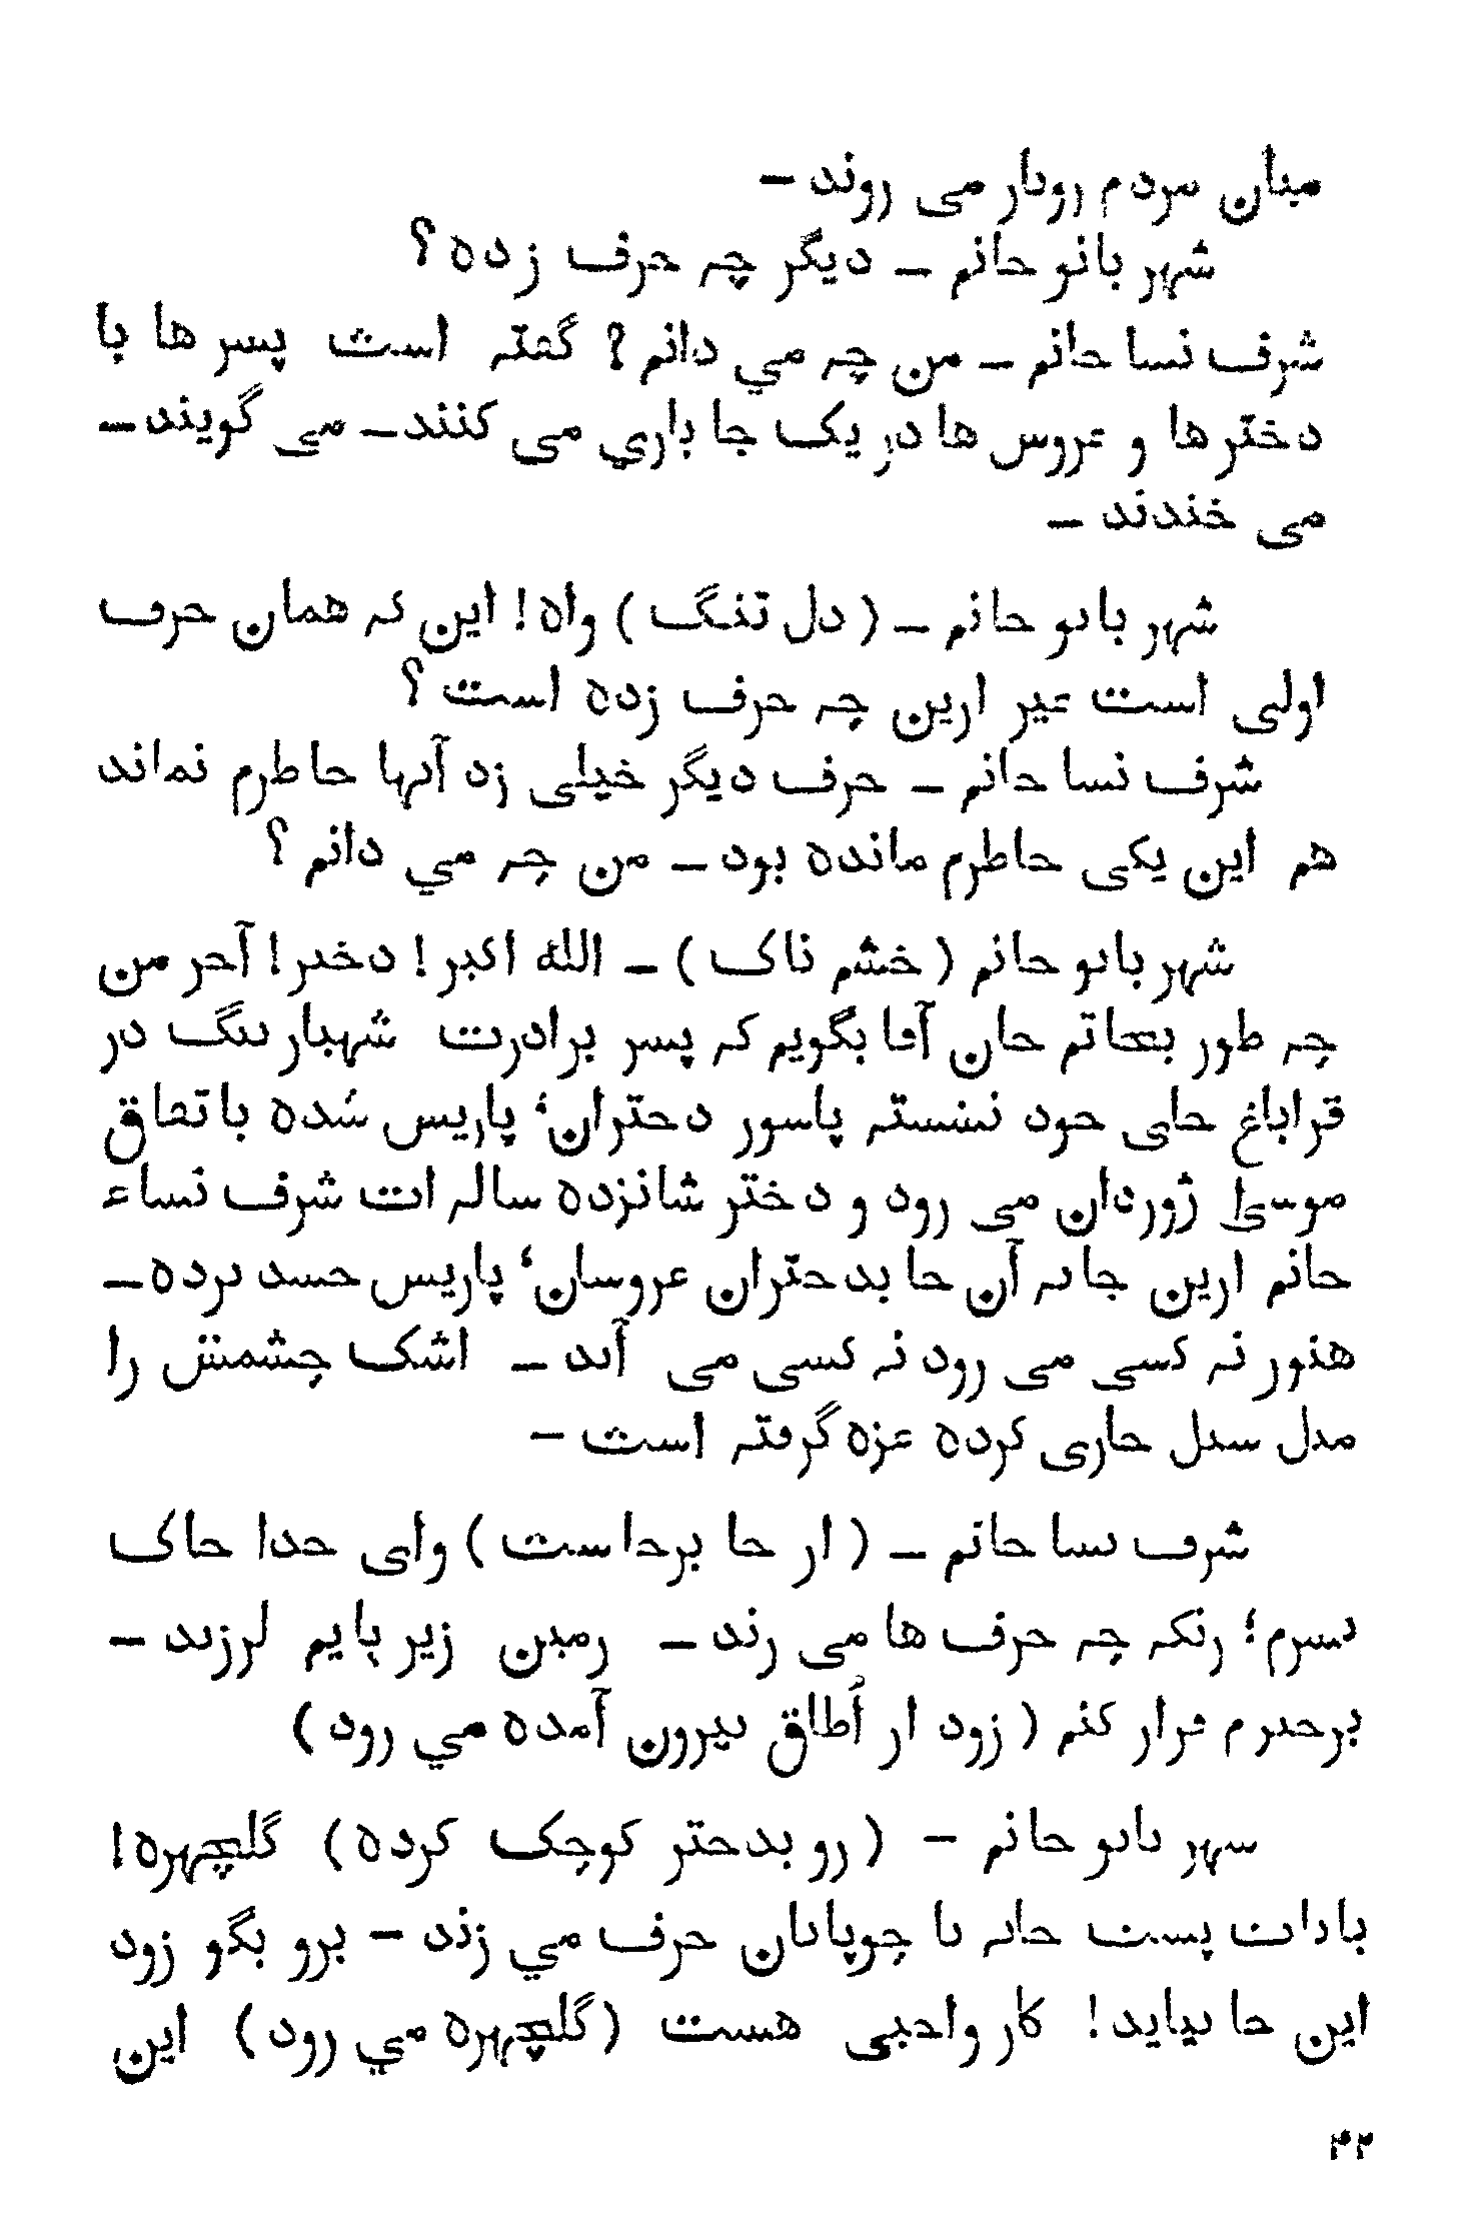 میان مردم روباز می روند –
شهر بانو خانم – دیگر چه حرف زده؟
شرف نسا خانم – من چه می دانم؟ گفته است پسر ها با
دختر ها و عروس ها در یک جا بازی می کنند – می گویند –
می خندند –
شهر بانو خانم – (دل تنگ) واه! این که همان حرف
اولی است غیر ازین چه حرف زده است؟
شرف نسا خانم – حرف دیگر خیلی زد آنها خاطرم نماند
هم این یکی خاطرم مانده بود – من چه می دانم؟
شهر بانو خانم (خشم ناک) – الله اکبر! دختر! آخر من
چه طور بحاتم خان آقا بگویم که پسر برادرت شهباز بیگ در
قراباغ جای خود نشسته پاسور دختران؛ پاریس شده باتفاق
موسیٰ ژوردان می رود و دختر شانزده ساله ات شرف نساء
خانم ازین جا به آن جا بدختران عروسان؛ پاریس حسد برده –
هنوز نه کسی می رود نه کسی می آید – اشک چشمش را
مدل سیل جاری کرده عزه گرفته است –
شرف نسا خانم – (از جا برخاست) وای خدا خاک
بسرم؛ زنکه چه حرف ها می زند – زمین زیر پایم لرزید –
برخیزم فرار کنم (زود از اُطاق بیرون آمده می رود)
شهر بانو خانم – (رو بدختر کوچک کرده) گلچهره!
بادات پست خانه با چوپانان حرف می زند – برو بگو زود
این جا بیاید! کار واجبی هست (گلچهره می رود) این
۴۲